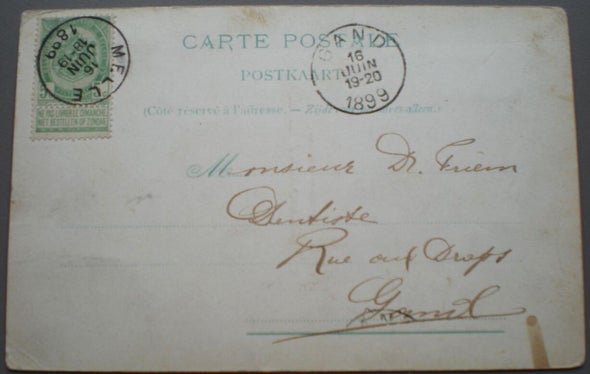 CARTE POSTALE
POSTKAART
(Côté réservé à l'adresse. — Zijde
MELLE
16
JUIN
18-19
1899
NE PAS LIVRER LE DIMANCHE
NIET BESTELLEN OP ZONDAG
GAND
16
JUIN
19-20
1899
Monsieur Dr. Friem
Dentiste
Rue aux Draps
Gand